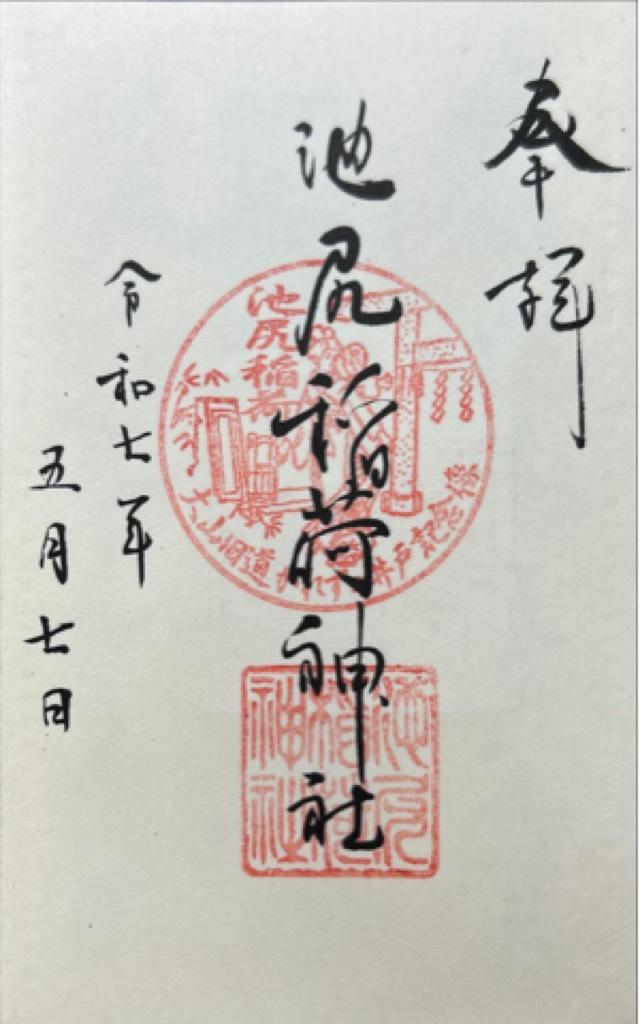 奉拝
池尻稲荷神社
令和七年
五月七日
池尻稲荷
大山旧道
井戸記念
池尻稲荷神社